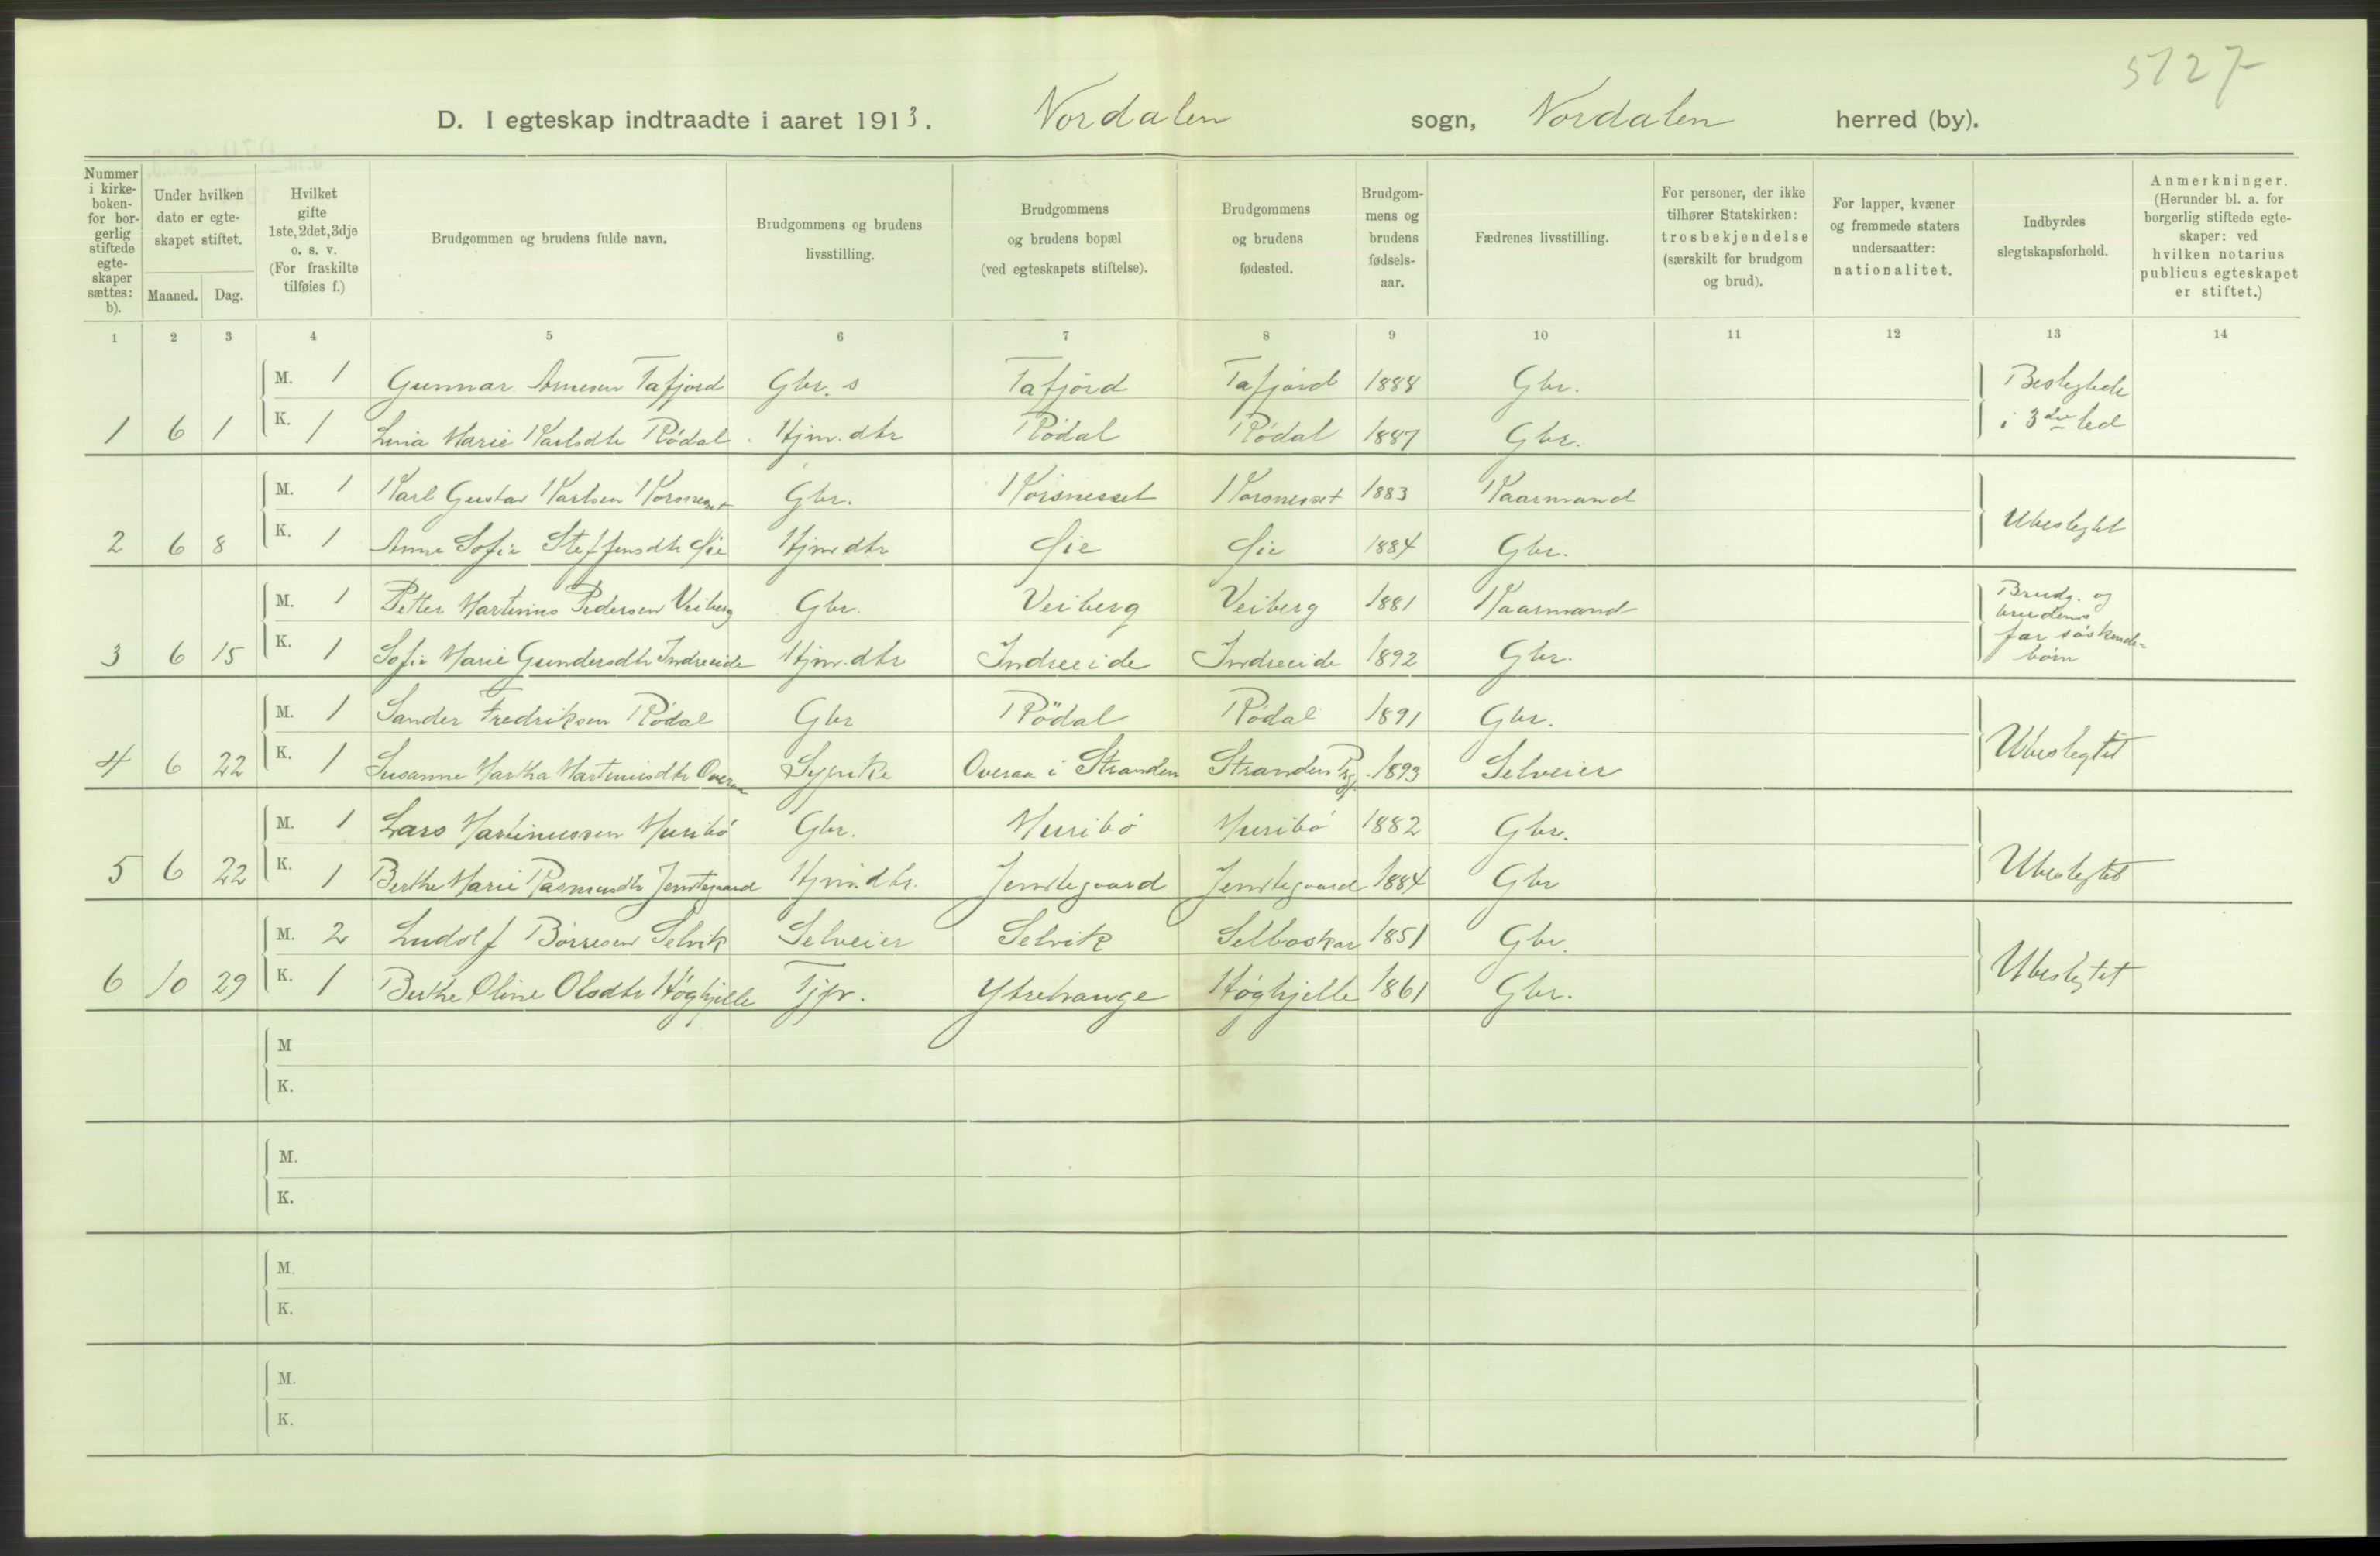 5127
D. I egteskap indtraadte i aaret 1913. Nordalen sogn, Nordalen herred (by).
Nummer i kirkeboken- for borgerlig stiftede egteskaper sættes: b).
Under hvilken dato er egteskapet stiftet.
Maaned. Dag.
Hvilket gifte 1ste, 2det, 3dje o. s. v. (For fraskilte tilføies f.)
Brudgommen og brudens fulde navn.
Brudgommens og brudens livsstilling.
Brudgommens og brudens bopæl (ved egteskapets stiftelse).
Brudgommens og brudens fødested.
Brudgommens og brudens fødselsaar.
Fædrenes livsstilling.
For personer, der ikke tilhører Statskirken: trosbekjendelse (særskilt for brudgom og brud).
For lapper, kvæner og fremmede staters undersaatter: nationalitet.
Indbyrdes slegtskapsforhold.
Anmerkninger. (Herunder bl. a. for borgerlig stiftede egteskaper: ved hvilken notarius publicus egteskapet er stiftet.)
1 2 3 4 5 6 7 8 9 10 11 12 13 14
M. 1 Gunnar Arnesen Tafjord Gbr. s Tafjord Tafjord 1888 Gbr. Beslegtede
1 6 1 K. 1 Lina Marie Karlsdtr Rødal Hjm. dtr Rødal Rødal 1887 Gbr. i 3die led
M. 1 Karl Gustav Karlsen Korsneset Gbr. Korsnesset Korsnesset 1883 Kaarmand
2 6 8 K. 1 Anne Sofie Steffensdtr Øie Hjm dtr Øie Øie 1884 Gbr. Ubeslegtet
M. 1 Petter Martinus Pedersen Veiberg Gbr. Veiberg Veiberg 1881 Kaarmand Brudg. og brudens
3 6 15 K. 1 Sofie Marie Gundersdtr Indreeide Hjm. dtr Indreeide Indreeide 1892 Gbr. far søskendebørn
M. 1 Sander Fredriksen Rødal Gbr Rödal Rødal 1891 Gbr.
4 6 22 K. 1 Susanne Martha Martinusdtr Overaa Sypike Overaa i Stranden Stranden Prg. 1893 Selveier Ubeslegtet
M. 1 Lars Martinussen Muribø Gbr. Muribø Muribø 1882 Gbr.
5 6 22 K. 1 Berthe Marie Rasmusdtr Jemtegaard Hjm. dtr. Jemtegaard Jemtegaard 1884 Gbr Ubeslegtet
M. 2 Ludolf Børresen Selvik Selveier Selvik Selboskar 1851 Gbr.
6 10 29 K. 1 Berthe Oline Olsdtr Høghjelle Tjp. Ytrehauge Høghjelle 1861 Gbr. Ubeslegtet
M
K.
M.
K.
M.
K.
M.
K.